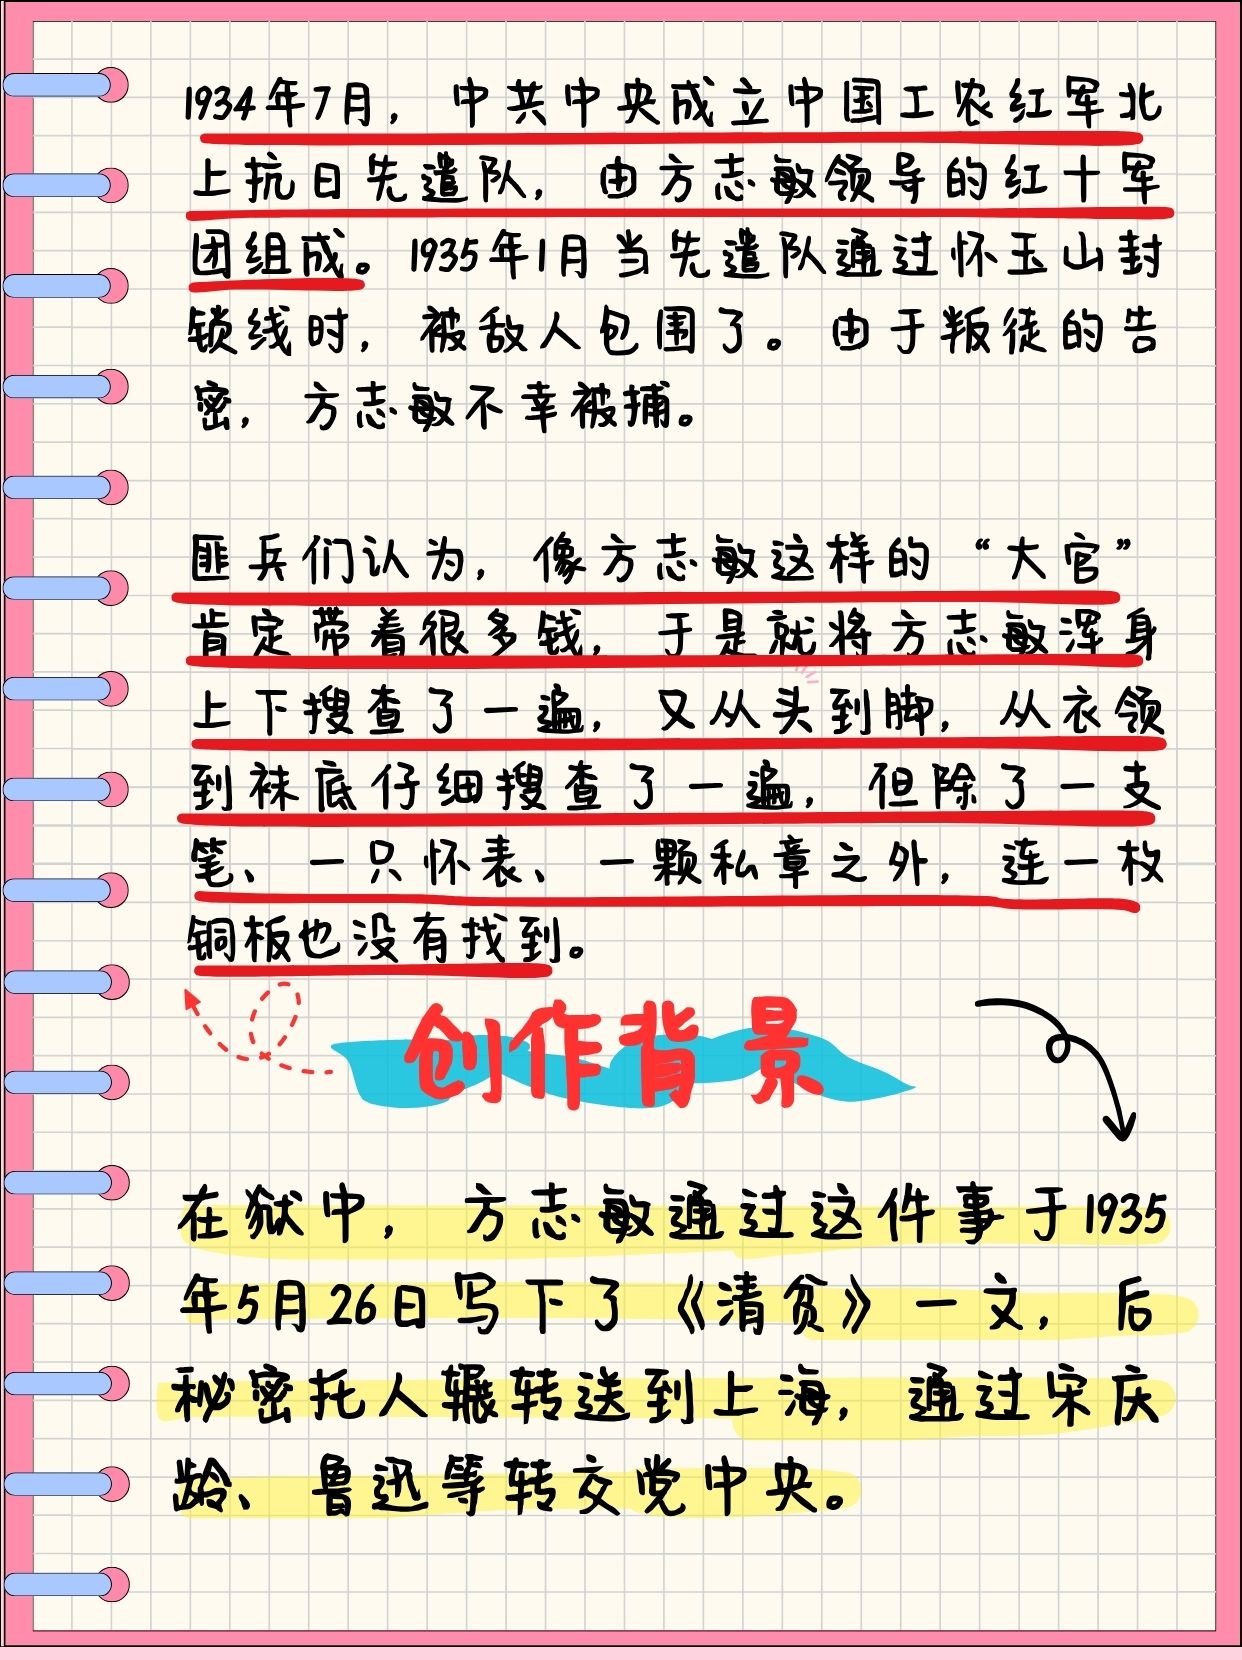 1934年7月，中共中央成立中国工农红军北
上抗日先遣队，由方志敏领导的红十军
团组成。1935年1月当先遣队通过怀玉山封
锁线时，被敌人包围了。由于叛徒的告
密，方志敏不幸被捕。
匪兵们认为，像方志敏这样的“大官”
肯定带着很多钱，于是就将方志敏浑身
上下搜查了一遍，又从头到脚，从衣领
到袜底仔细搜查了一遍，但除了一支
笔、一只怀表、一颗私章之外，连一枚
铜板也没有找到。
创作背景
在狱中，方志敏通过这件事于1935
年5月26日写下了《清贫》一文，后
秘密托人辗转送到上海，通过宋庆
龄、鲁迅等转交党中央。